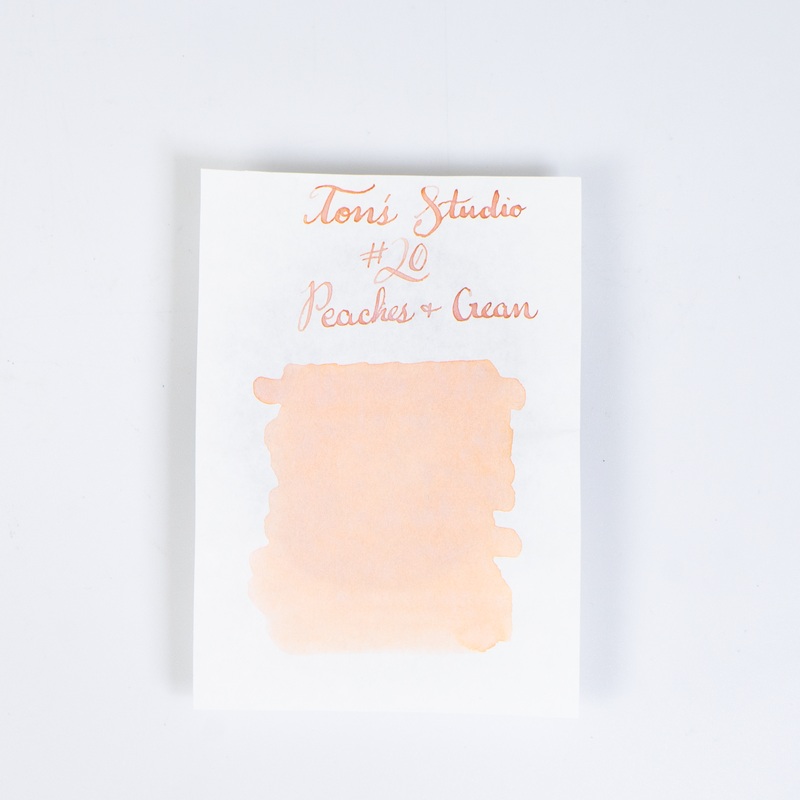 Ton's Studio
#20
Peaches + Cream